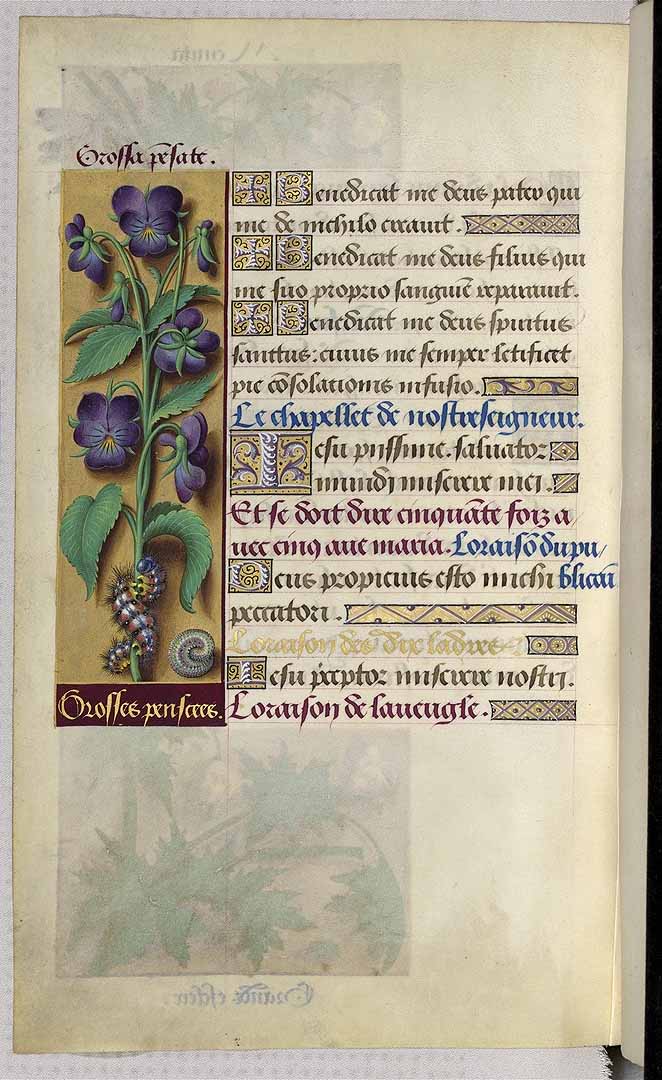 Grossa pēsate.
Benedicat me deus pater qui
me de nichilo creauit.
Benedicat me deus filius qui
me suo proprio sanguīe reparauit.
Benedicat me deus spiritus
sanctus: cuius me semper letificet
pie cōsolationis infusio.
Le chapellet de nostreseigneur.
Iesu piissime. saluator
mundi miserere mei.
Et se doit dire cinquāte foiz a/
uec cinq aue maria. Loraisō du pu/
Deus propicius esto michi blicai
peccatori.
Loraison des dix ladres
Iesu p̄ceptor miserere nostri.
Grosses pensees. Loraison de laueugle.